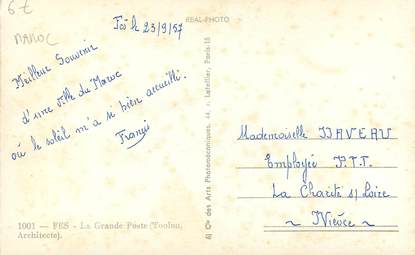 6€
MAROC
Fès le 23/9/57
Meilleur Souvenir
d'une ville du Maroc
où le soleil m'a si bien accueilli.
Francis
1001 — FES - La Grande Poste (Toulon,
Architecte).
REAL-PHOTO
Cie des Arts Photomécaniques, 44, r. Letellier, Paris-15
Mademoiselle DAVEAU
Employée P.T.T.
La Charité s/Loire
~ Nièvre ~